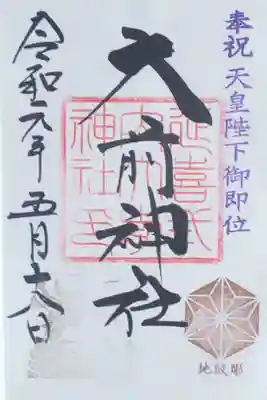 奉祝 天皇陛下御即位
大前神社
延喜式内大前神社印
令和元年五月十八日
地紋彫